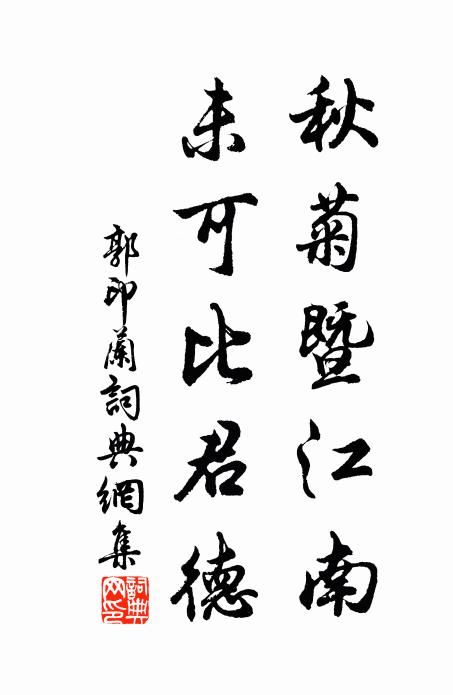 秋菊暨江南
未可比君德
郭印蘭詞典網集
詞典網印